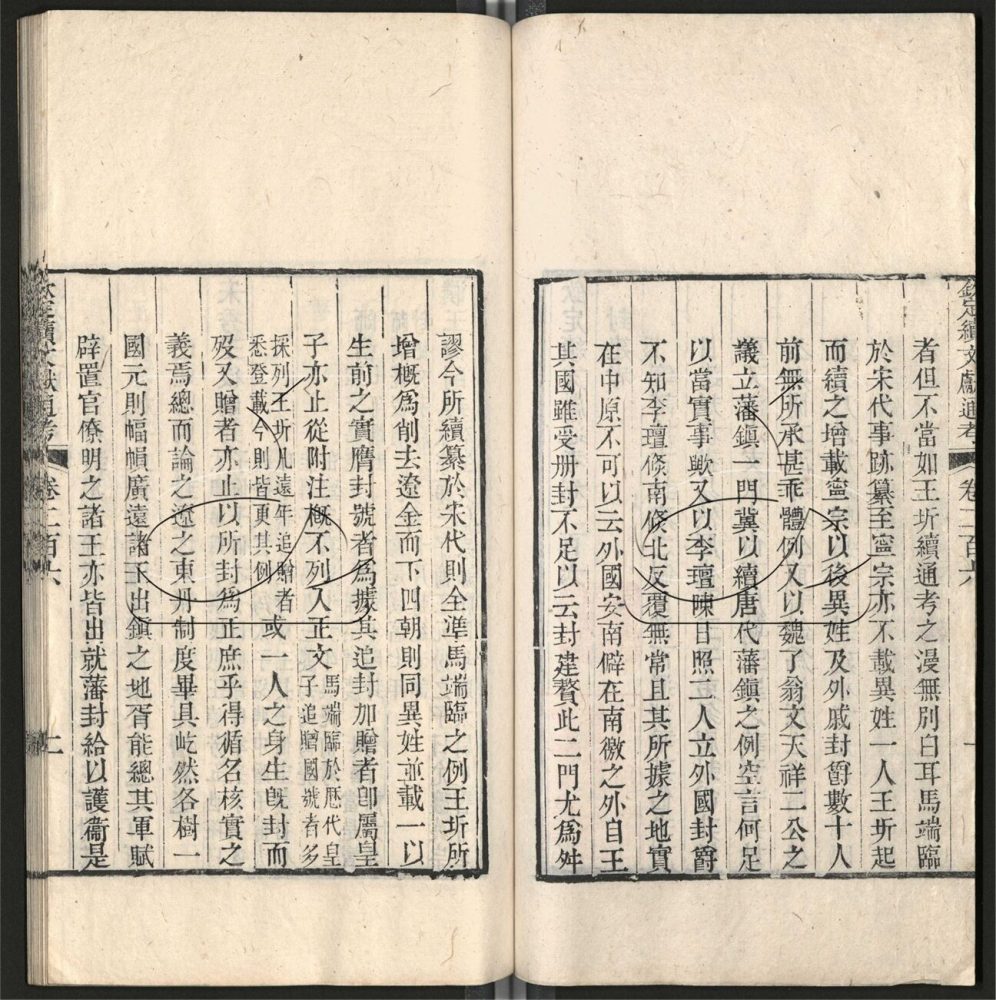 欽定續文獻通考 卷二百六
者但不當如王圻續通考之漫無別白耳馬端臨
於宋代事跡纂至寧宗亦不載異姓一人王圻起
而續之增載寧宗以後異姓及外戚封爵數十人
前無所承甚乖體例又以魏了翁文天祥二公之
議立藩鎮一門冀以續唐代藩鎮之例空言何足
以當實事歟又以李璮陳日照二人立外國封爵
不知李璮條南條北反覆無常且其所據之地實
在中原不可以云外國安南僻在南徼之外自王
其國雖受册封不足以云封建贅此二門尤爲舛
謬今所續纂於宋代則全準馬端臨之例王圻所
增槪爲削去遼金而下四朝則同異姓並載一以
生前之實膺封號者爲據其追封加贈者卽屬皇
子亦止從附注槪不列入正文馬端臨於歷代皇子追贈國號者多
採列王圻凡遠年追贈者悉登載今則皆更其例或一人之身生旣封而
歿又贈者亦止以所封爲正庶乎得循名核實之
義焉總而論之遼之東丹制度畢具屹然各樹一
國元則幅幀廣遠諸王出鎮之地胥能總其軍賦
辟置官僚明之諸王亦皆出就藩封給以護衞是
欽定續文獻通考 卷二百六 二